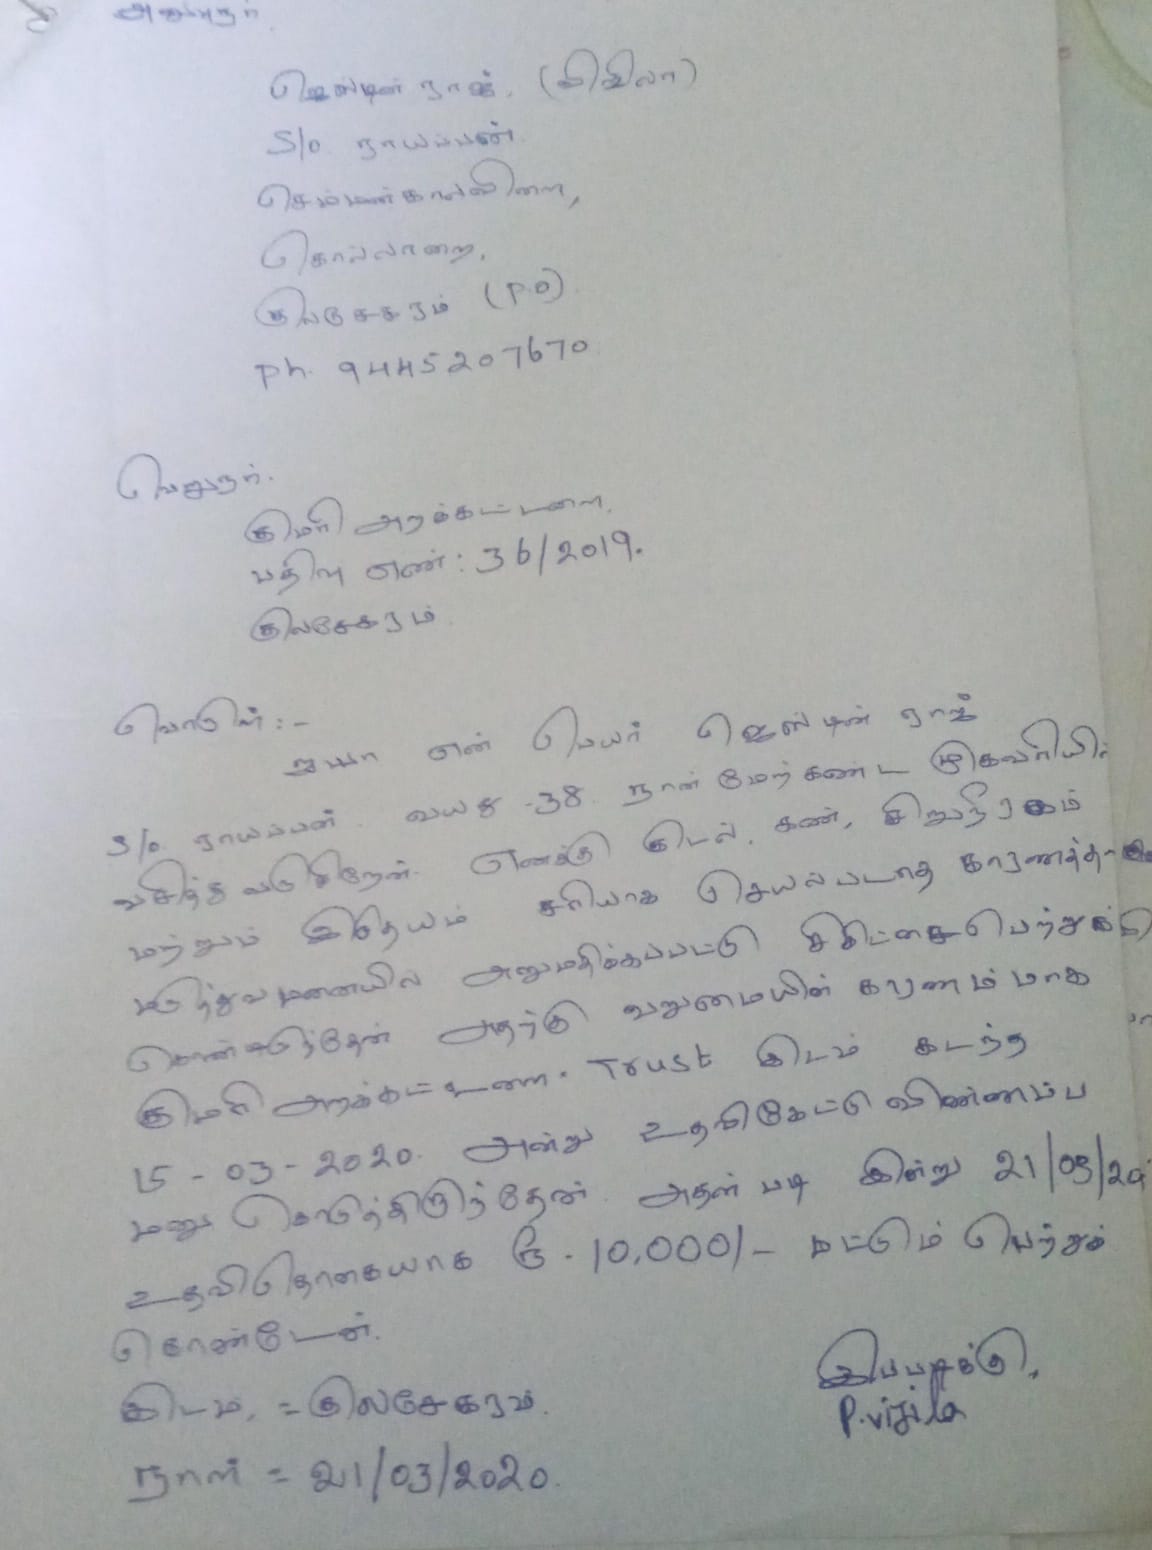 அனுப்புநர்.
ஜெஸ்டின் ராஜ். (விஜிலா)
S/o ராயப்பன்.
செம்மண்காலவிளை,
கொல்லாறை,
குலசேகரம் (P.O)
Ph. 9445207670
பெறுநர்.
குமரி அறக்கட்டளை,
பதிவு எண்: 36/2019.
குலசேகரம்
பொருள்:-
ஐயா என் பெயர் ஜெஸ்டின் ராஜ்
S/o ராயப்பன். வயது -38. நான் மேற்கண்ட முகவரியில்
வசித்து வருகிறேன். எனக்கு குடல், கண், சிறுநீரகம்
மற்றும் இதயம் சரியாக செயல்படாத
மருத்துவமனையில் அனுமதிக்கப்பட்டு சிகிட்சைபெற்று
கொண்டிருந்தேன் அதற்கு வறுமையின் காரணம்மாக
குமரி அறக்கட்டளை. Trust இடம் கடந்த
15-03-2020. அன்று உதவிகேட்டு விண்ணப்ப
மனு கொடுத்திருந்தேன். அதன் படி இன்று 21/03/20
உதவிதொகையாக ரூ. 10,000/- மட்டும் பெற்றுக்
கொண்டேன்.
இடம். = குலசேகரம்.
இப்படிக்கு,
P. விஜிலா
நாள் = 21/03/2020.